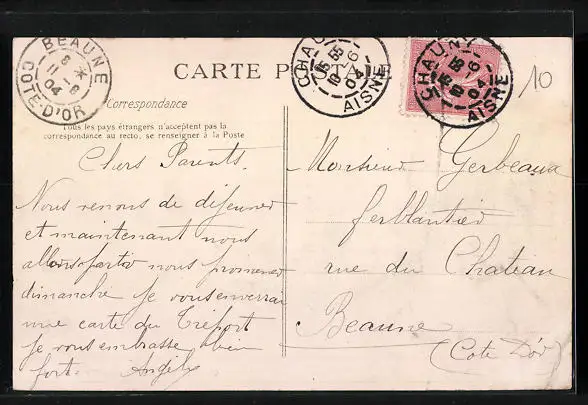 BEAUNE
8
11-6
04
COTE-D'OR
CHAUNY
15 55
10 -6
04
AISNE
CHAUNY
15 55
10 -6
04
AISNE
10
CARTE POSTALE
Correspondance
Tous les pays étrangers n'acceptent pas la
correspondance au recto, se renseigner à la Poste
Chers Parents.
Nous venons de déjeuner
et maintenant nous
allons partir nous promener
dimanche je vous enverrai
une carte du Tréport
Je vous embrasse bien
fort. Angèle
Monsieur Gerbeaux
ferblantier
rue du Chateau
Beaune
(Cote d'or)